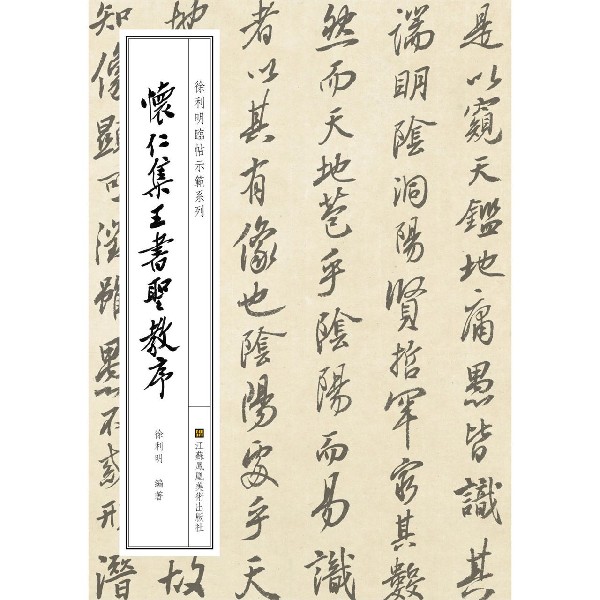 是以窺天鑑地庸愚皆識其
端明陰洞陽賢哲罕窮其數
然而天地苞乎陰陽而易識
者以其有像也陰陽處乎天
徐利明臨帖示範系列
江蘇鳳凰美術出版社
懷仁集王書聖教序
徐利明 編著
故
知像顯可徵雖愚不惑形潛